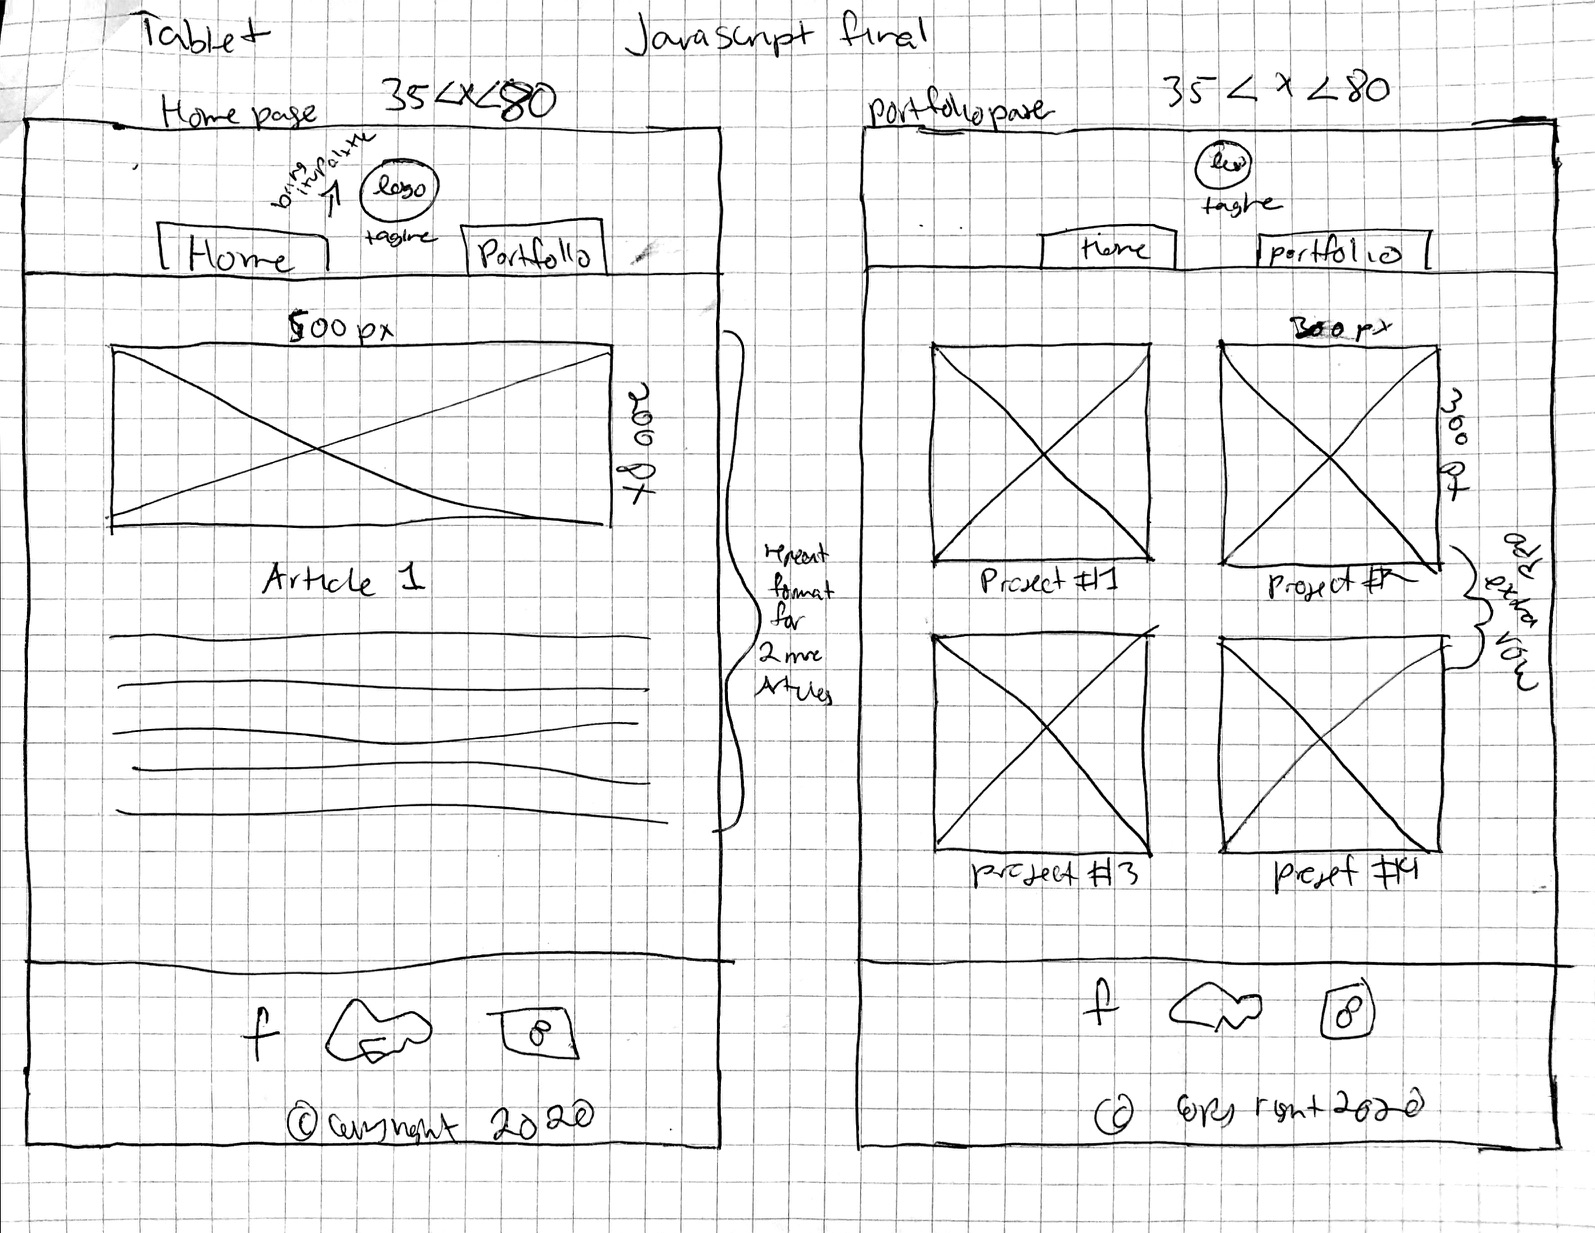 Tablet
Javascript final
Home page
35 < x < 80
bring it up a little
logo
tagline
Home
Portfolio
500 px
200 px
Article 1
repeat
format
for
2 more
Articles
f
© Copyright 2020
portfolio page
35 < x < 80
logo
tagline
Home
portfolio
300 px
300 px
Project #1
project #2
add extra row
project #3
project #4
f
© Copyright 2020